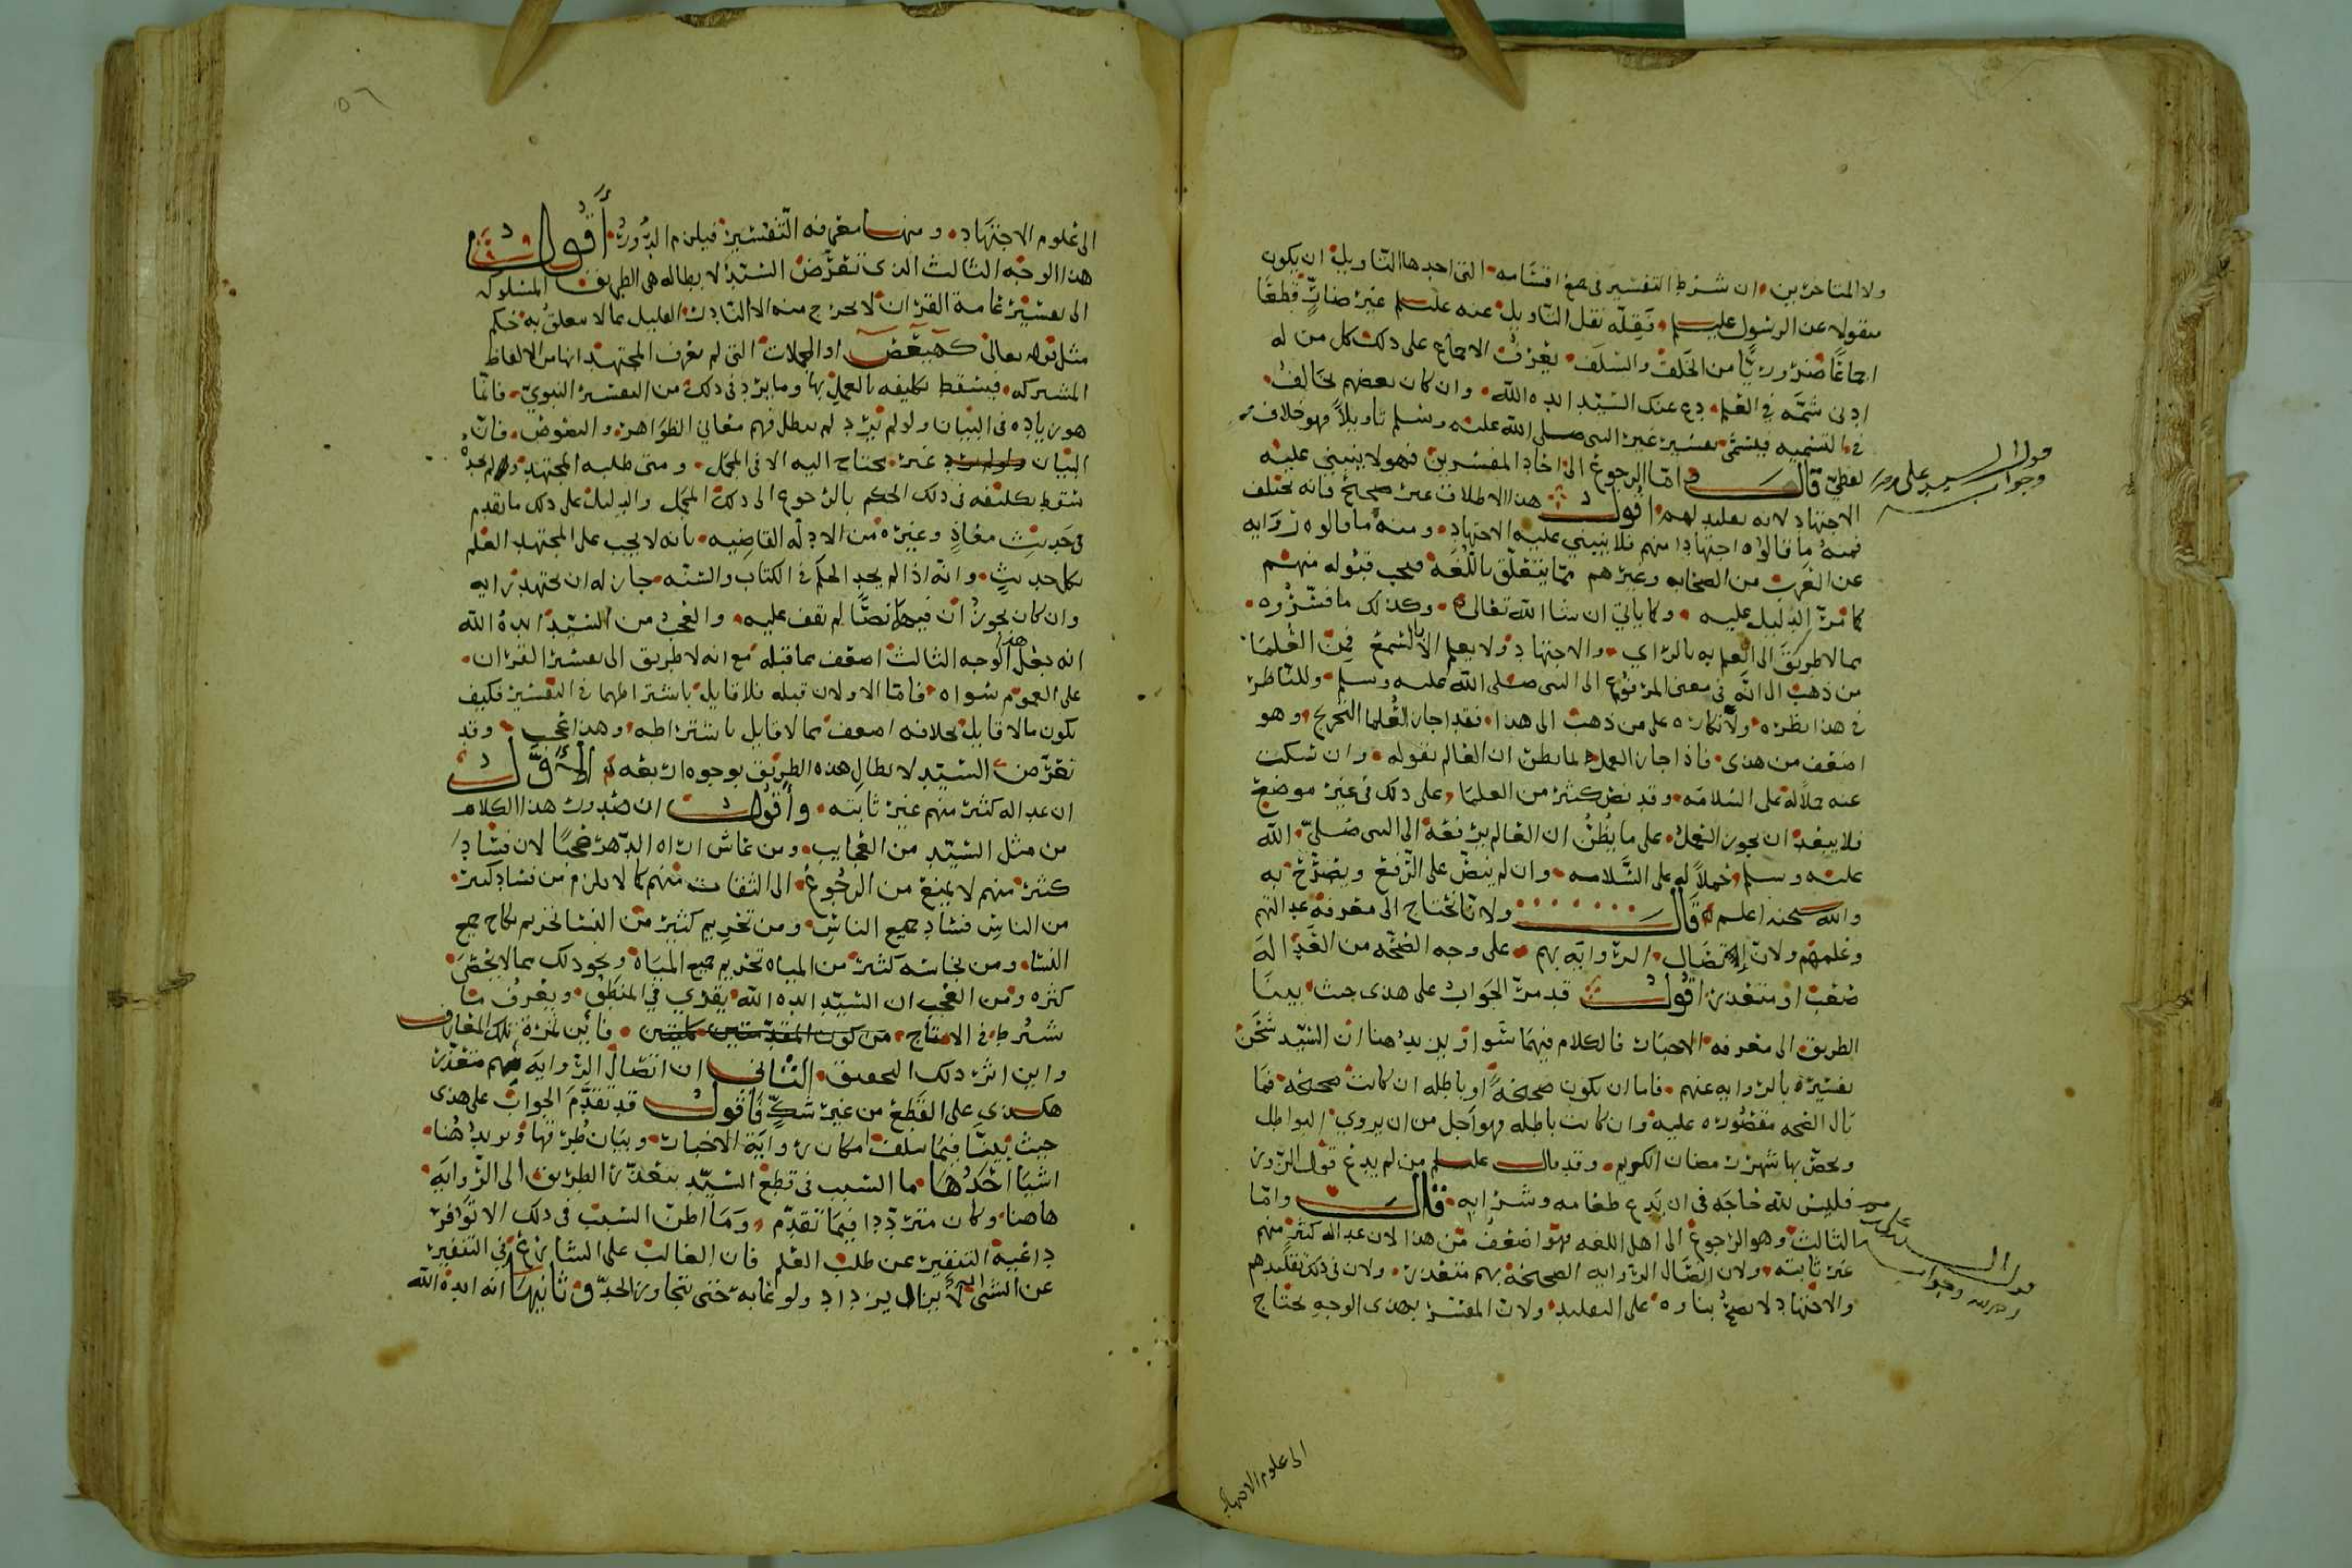 ولا المتاخرين ان شرط التفسير في جمع اقسامه التي احدها التاويل ان يكون
منقولا عن الرسول عليلم وقله نقل التاويل عنه عليلم غير ضارٍّ قطعًا
اجماعًا ضروريًّا من الخلف والسلف يعرف الاجماع على ذلك كل من له
ادنى شمَّه في العلم دع عنك السيّد ايده الله وان كان بعضهم يخالف
في التسميه فيسمّى تفسير غير النبي صلى الله عليه وسلم تأويلاً فهو خلاف
لفظيّ قال وامّا الرجوع الى احاد المفسرين فهو لا ينبني عليه
الاجتهاد لانه تقليد لهم اقول هذا الاطلاق غير صحيح فانه يختلف
فمنه ما قالوه اجتهادا منهم فلا ينبني عليه الاجتهاد ومنه ما قالوه روايه
عن العرب من الصحابه وغيرهم ممّا يتعلّق باللّغة فيجب قبوله منهم
كما مرّ الدليل عليه وكما ياتي ان شا الله تعالى وكذلك ما فسّروه
بما لا طريق الى العلم به بالراي والاجتهاد ولا يعلم الا بالسّمع فمن العلماء
من ذهب الى انّه في معنى المرفوع الى النبي صلى الله عليه وسلم وللناظر
في هذا نظره ولا نكاره على من ذهب الى هذا فقد اجاز العلما التخريج وهو
اضعف من هذى فاذا اجاز العمل بما يظن ان العالم يقوله وان سكت
عنه حملا له على السلامه وقد نص كثير من العلما على ذلك في غير موضع
فلا يبعد ان يجوز العمل على ما يُظنُّ ان العالم يرفعه الى النبي صلى الله
عليه وسلم حملاً له على السَّلامه وان لم ينصّ على الرّفع ويصرّح به
والله سبحنه اعلم قال ولانا نحتاج الى معرفة عدالتهم
وعلمهم ولان اتصال الروايه بهم على وجه الصّحّه من العداله
صعب او متعذر اقول قد مرّ الجواب على هذى حيث بينّا
الطريق الى معرفه الاخبار فالكلام فيهما سوا ونزيد هنا ان السّيّد شحن
تفسيره بالروايه عنهم فاما ان يكون صحيحةً او باطله ان كانت صحيحه فما
بال الصحه مقصوره عليه وان كانت باطله فهو اجل من ان يروي البواطل
ويخصّ بها شهر رمضان الكريم وقد قال عليلم من لم يدع قول الزور
فليس لله حاجه في ان يدع طعامه وشرابه قال وامّا
الثالث وهو الرجوع الى اهل اللغه فهو اضعف من هذا لان عداله كثير منهم
غير ثابته ولان اتّصال الروايه الصحيحه بهم متعذر ولان في ذلك تقليدهم
والاجتهاد لا يصحّ بناوه على التقليد ولان المفسّر بهذى الوجه يحتاج
قول السيد على
وجواب
قول السيد
وجوابه
الى علوم الاجتهاد
٥٦
الى علوم الاجتهاد ومنها معرفه التّفسير فيلزم الدّور اقول
هذا الوجه الثالث الذى تعرّض السّيّد لابطاله هى الطريق المسلوكه
الى تفسير عامة القران لا يخرج منه الا النّادر القليل مما لا يتعلّق به حكم
مثل قوله تعالى كهيعص او المجملات التى لم يعرف المجتهد انها من الالفاظ
المشتركه فيسقط تكليفه بالعمل بها وما يرد في ذلك من التفسير النبويّ فانّما
هو زياده في البيان ولو لم يرد لم يبطل فهم معاني الظّواهر والنصوص فان
البيان غير محتاج اليه الا فى المجمل ومتى طلبه المجتهد ولم يجده
سقط تكليفه فى ذلك الحكم بالرجوع الى ذلك المجمل والدليل على ذلك ما تقدم
في حديث معاذ وغيره من الادلّه القاضيه بانه لا يجب على المجتهد العلم
بكل حديثٍ وانّه اذا لم يجد الحكم في الكتاب والسّنّه جاز له ان يجتهد رايه
وان كان يجوز ان فيهما نصًّا لم يقف عليه والعجب من السّيّد ايده الله
انه جعل هذا الوجه الثالث اضعف مما قبله مع انه لا طريق الى تفسير القران
على العموم سواه فامّا الاولان قبله فلا قايل باشتراطهما في التفسير فكيف
يكون ما لا قايل بخلافه اضعف مما لا قايل باشتراطه وهذا عجب وقد
تعرّض السّيّد لابطال هذه الطريق بوجوه اربعه الاوّل
ان عداله كثير منهم غير ثابته واقول ان صدور هذا الكلام
من مثل السّيّد من العجايب ومن عاش اراه الدّهر عجبًا لان فساد
كثير منهم لا يمنع من الرجوع الى الثقات منهم كما لا يلزم من فساد كثير
من الناس فساد جميع الناس ومن تحريم كثير من النسا تحريم نكاح جميع
النسا ومن نجاسه كثير من المياه تحريم جميع المياه ونحو ذلك مما لا يحصى
كثره ومن العجب ان السّيّد ايده الله يقري في المنطق ويعرف ما
شرط في الانتاج من كون المقدّمتين كليتين فاين ثمرة تلك المعارف
واين اثر ذلك التحقيق الثاني ان اتصال الروايه بهم متعذر
هكذى على القطع من غير شكّ فاقول قد تقدّم الجواب على هذى
حيث بينّا فيما سلف امكان رواية الاخبار وبيان طرقها ونريد هنا
اشيا احدها ما السبب فى قطع السّيّد بتعذّر الطريق الى الرّوايه
هاهنا وكان متردّدا فيما تقدّم وما اظن السبب فى ذلك الا توفّر
داعية التنفير عن طلب العلم فان الغالب على السّارع في التنفير
عن الشي انه لا يزال يزداد ولوعًا به حتى يتجاوز الحدّ وثانيها انه ايده الله